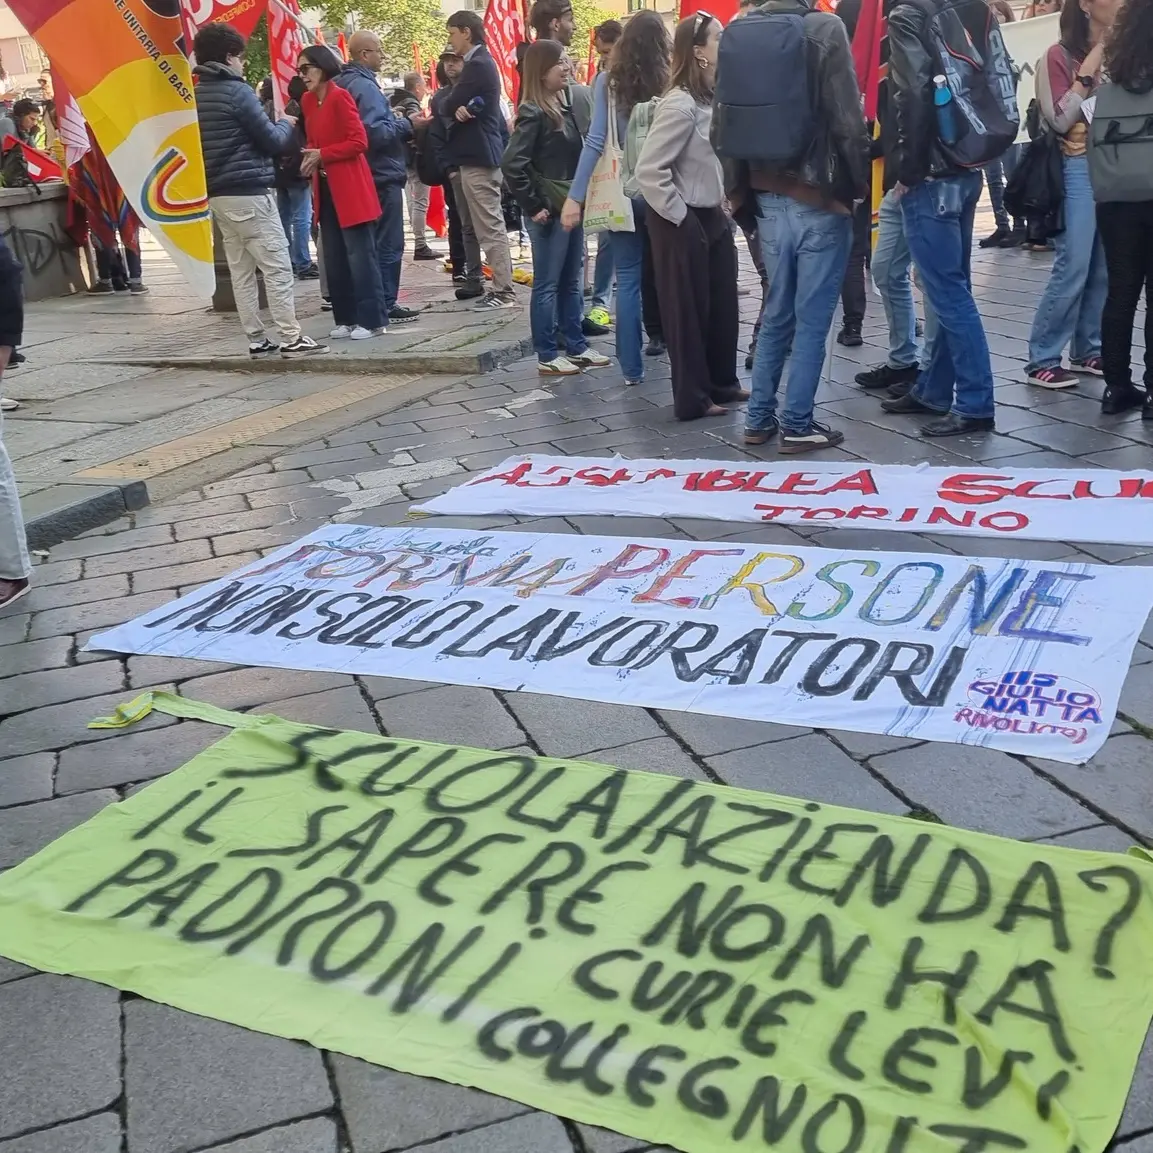 E UNITARIA DI BASE
ASSEMBLEA SCUO
TORINO
La scuola
FORMA PERSONE
NON SOLO LAVORATORI
IIS
GIULIO
NATTA
RIVOLI (TO)
SCUOLA/AZIENDA?
IL SAPERE NON HA
PADRONI CURIE LEVI
COLLEGNO IT